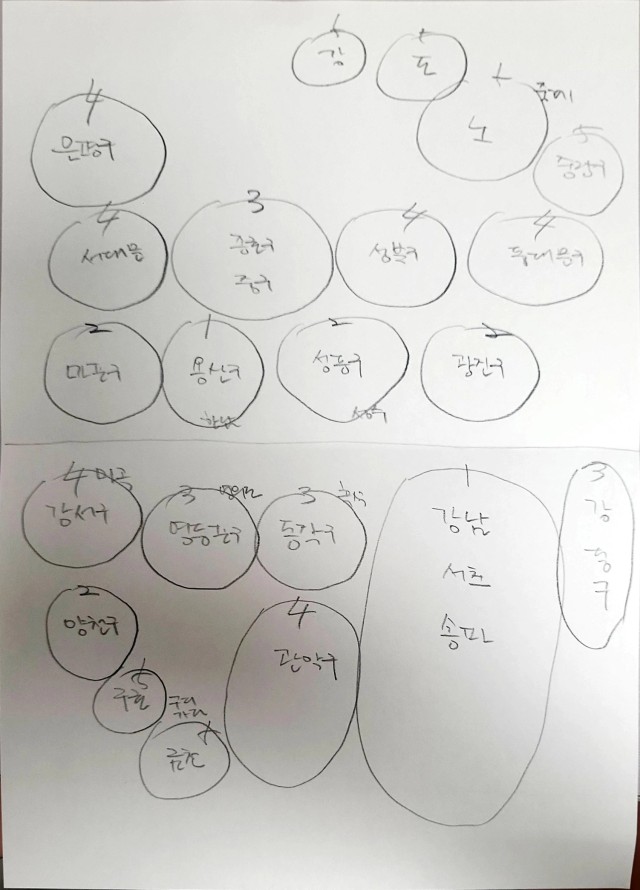 강
도
노
4
은평구
5
중랑구
4
서대문
3
종현구
중구
4
성북구
4
동대문구
2
마포구
1
용산구
한남
2
성동구
성수
2
광진구
4 마곡
강서구
3
영등포구
3 흑석
동작구
1
강남
서초
송파
3
강
동
구
2
양천구
4
관악구
5
구로
구디
가디
금천